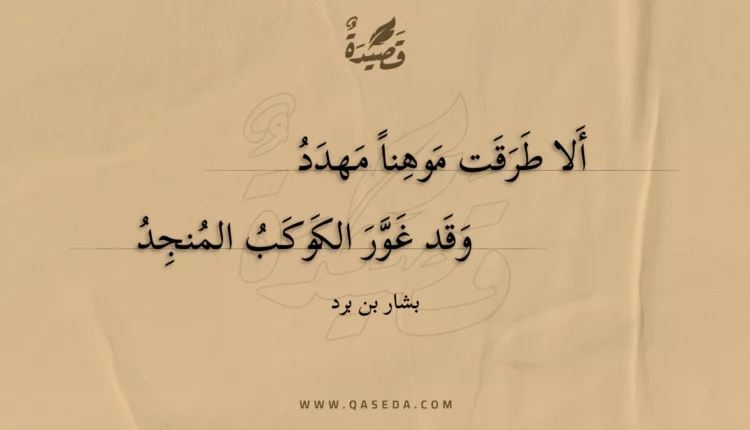 قَصِيدَةٌ
أَلا طَرَقَت مَوهِناً مَهدَدُ
وَقَد غَوَّرَ الكَوكَبُ المُنجِدُ
بشار بن برد
WWW.QASEDA.COM